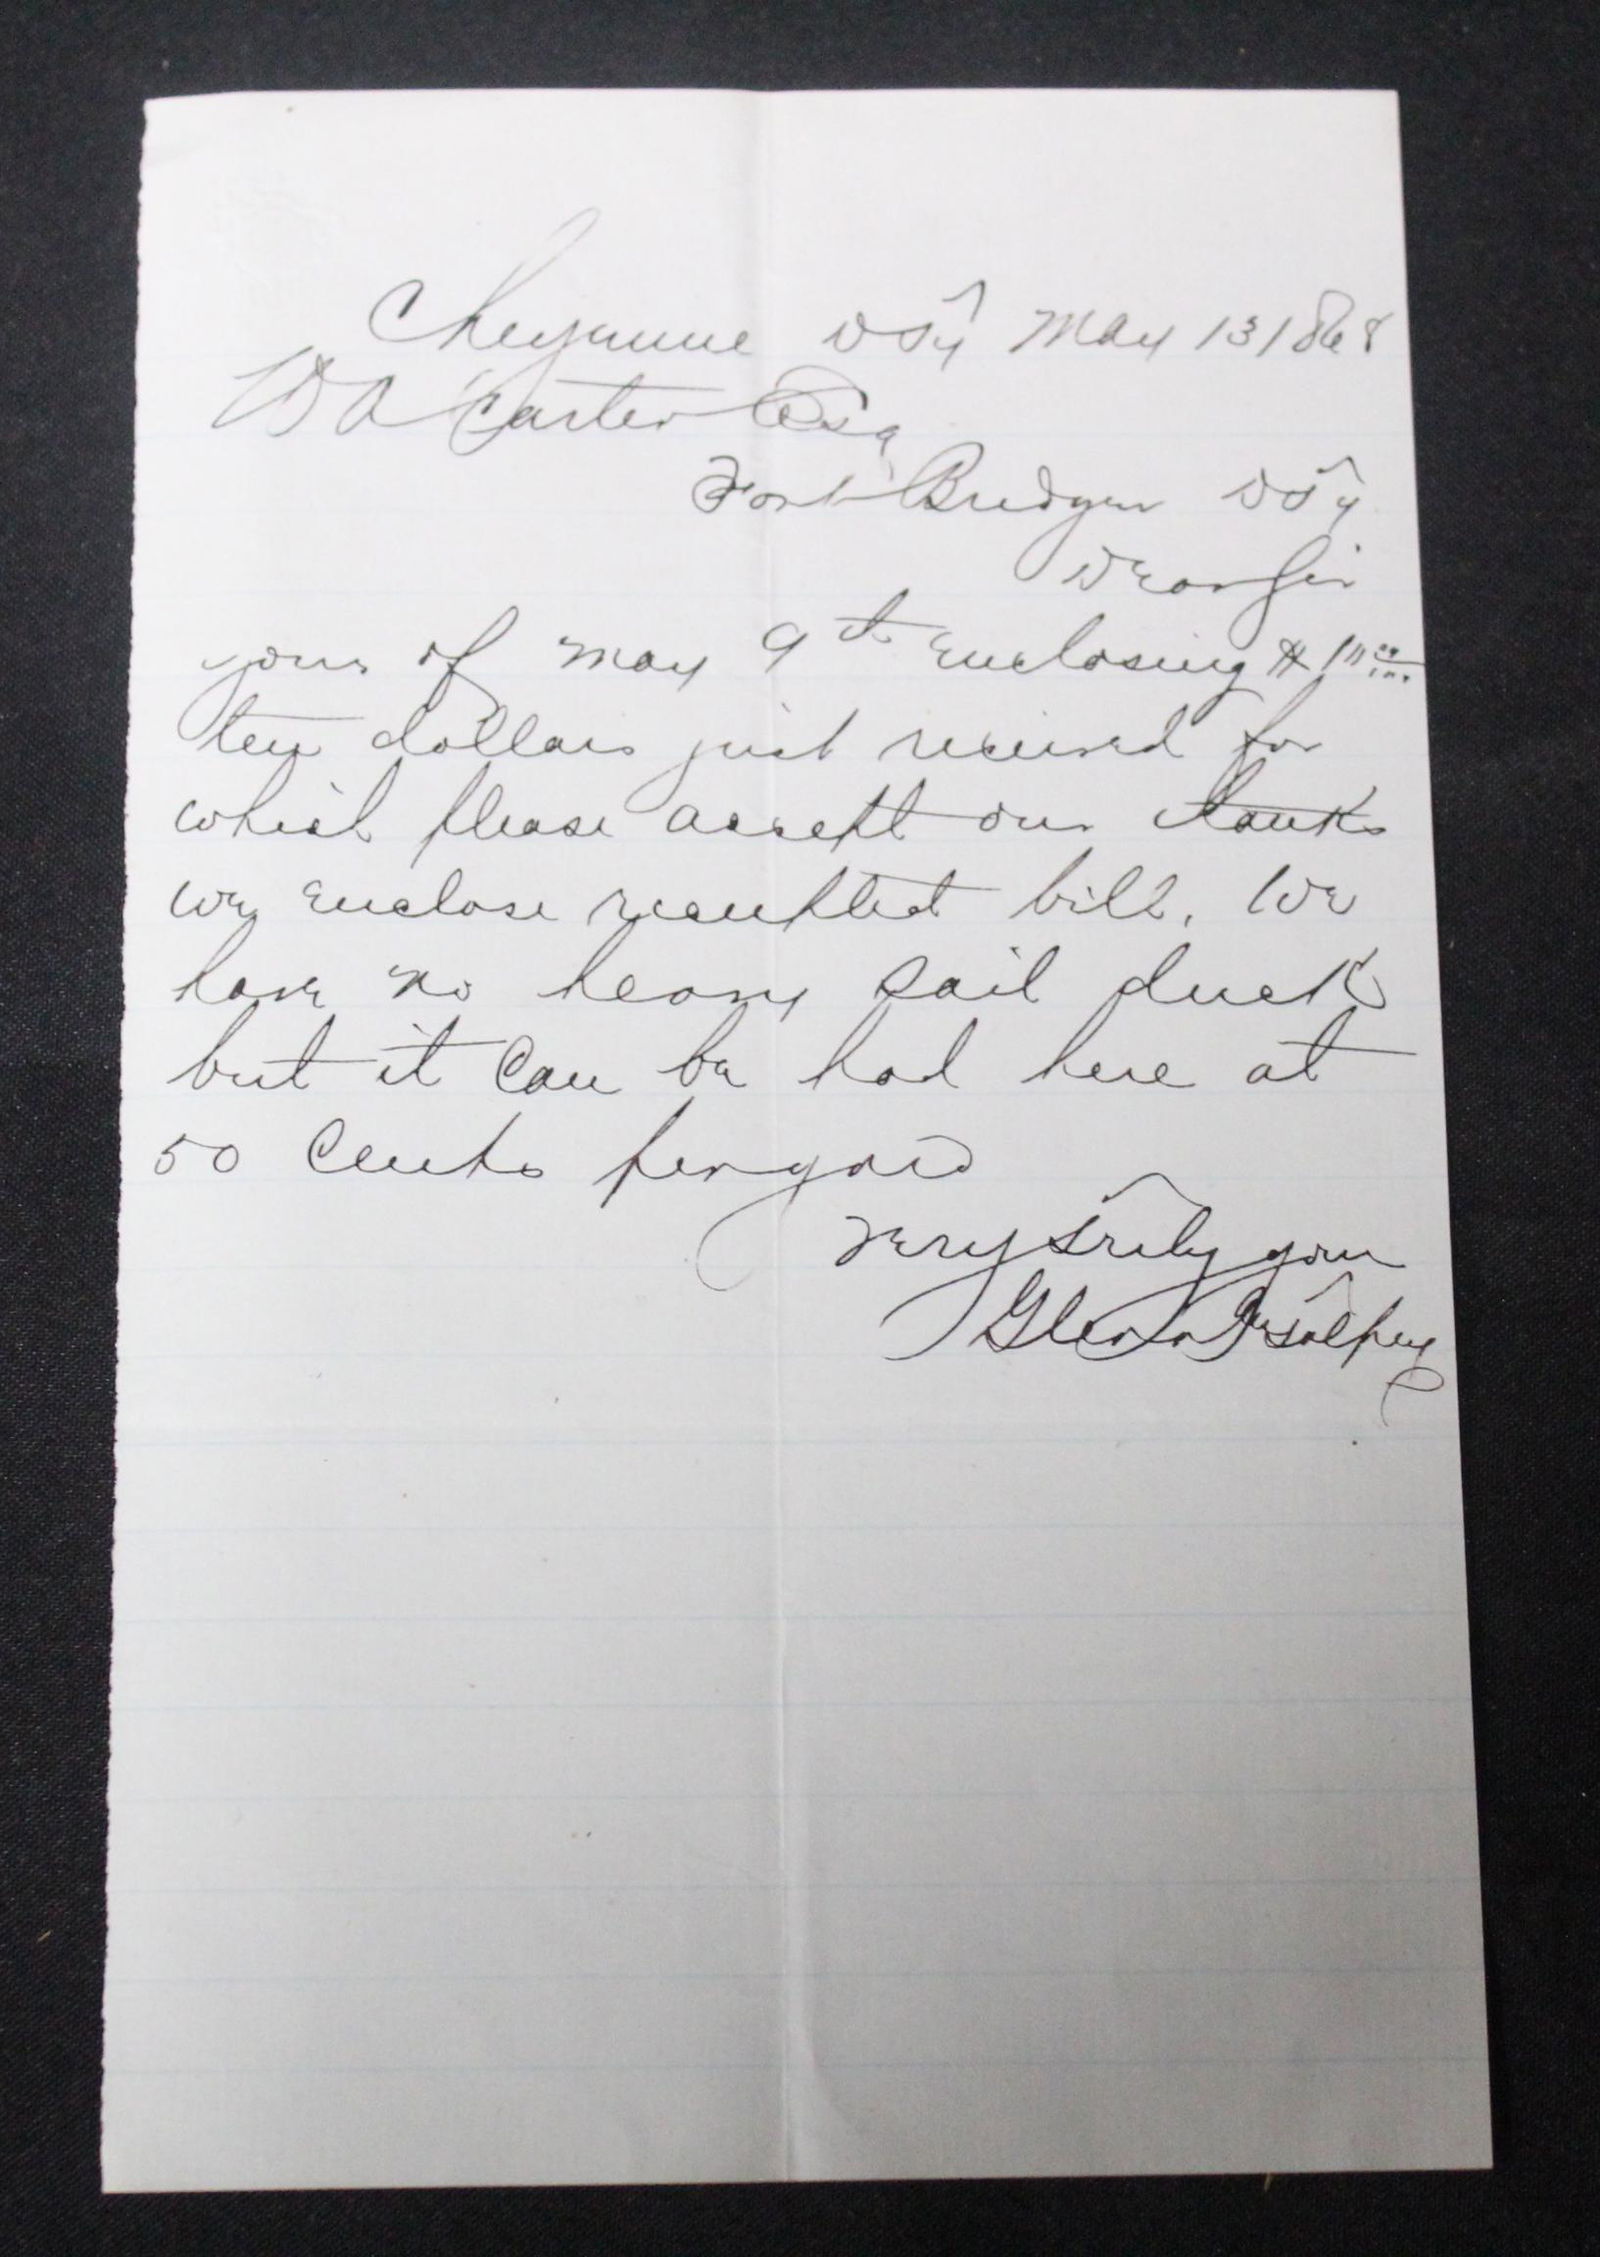 Cheyenne D Ty May 13 1868
W A Carter Esq
Fort Bridger D Ty
Dear Sir
yours of May 9th enclosing $10 00/100
ten dollars just received for
which please accept our thanks
we enclose receipted bill. We
have no heavy sail duck
but it can be had here at
50 cents per yard
Very truly yours
Glenn &